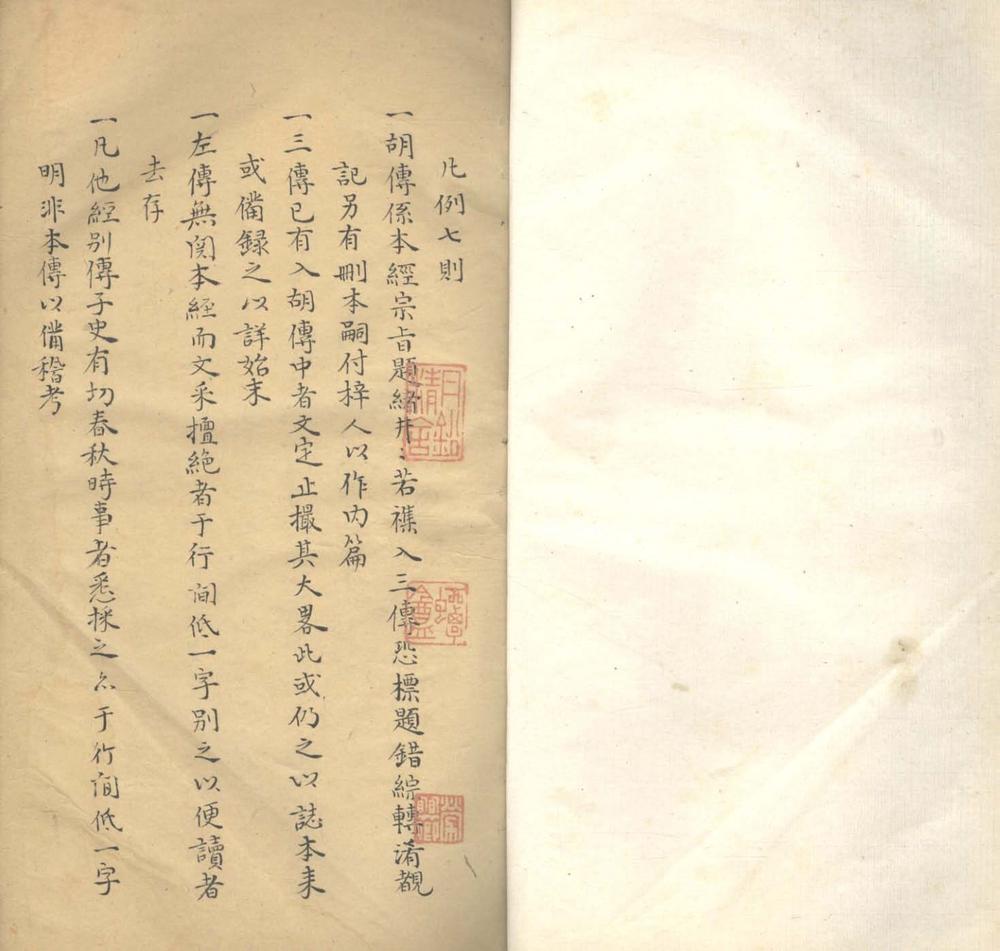 凡例七則
一胡傳係本經宗旨題緒井〻若襍入三傳恐標題錯綜轉淆觀
記另有刪本嗣付梓人以作內篇
一三傳已有入胡傳中者文定止撮其大畧此或仍之以誌本末
或備録之以詳始末
一左傳無関本經而文采擅絶者于行間低一字別之以便讀者
去存
一凡他經别傳子史有切春秋時事者悉採之亦于行間低一字
明非本傳以備稽考